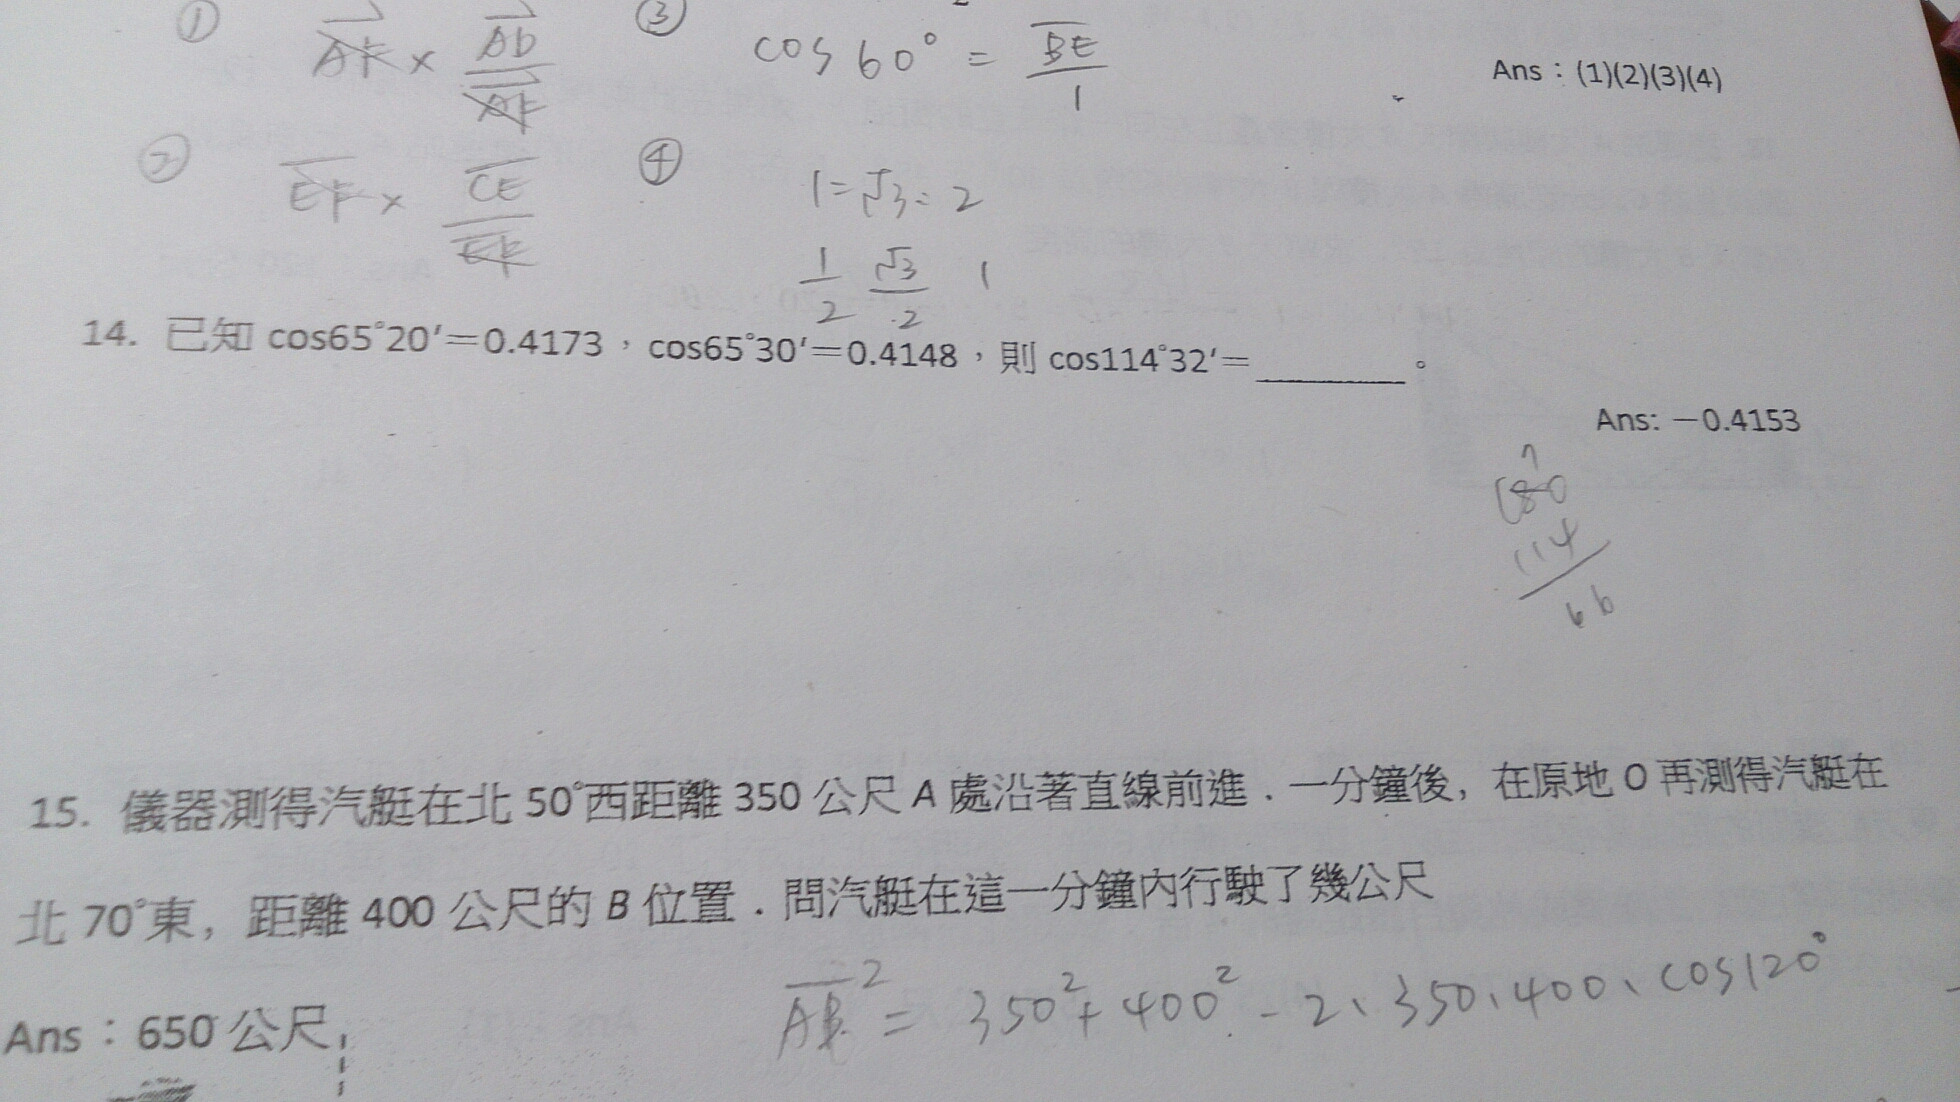 ① AF × AD/AF ③ cos 60° = BE/1
Ans：(1)(2)(3)(4)
② EF × CE/EF ④ 1=√3=2
1/2 √3/2 1
14. 已知 cos65°20′＝0.4173，cos65°30′＝0.4148，則 cos114°32′＝________。
Ans: －0.4153
7
180
114
66
15. 儀器測得汽艇在北 50°西距離 350 公尺 A 處沿著直線前進．一分鐘後，在原地 O 再測得汽艇在
北 70°東，距離 400 公尺的 B 位置．問汽艇在這一分鐘內行駛了幾公尺
AB² = 350² + 400² - 2、350、400、cos120°
Ans：650 公尺